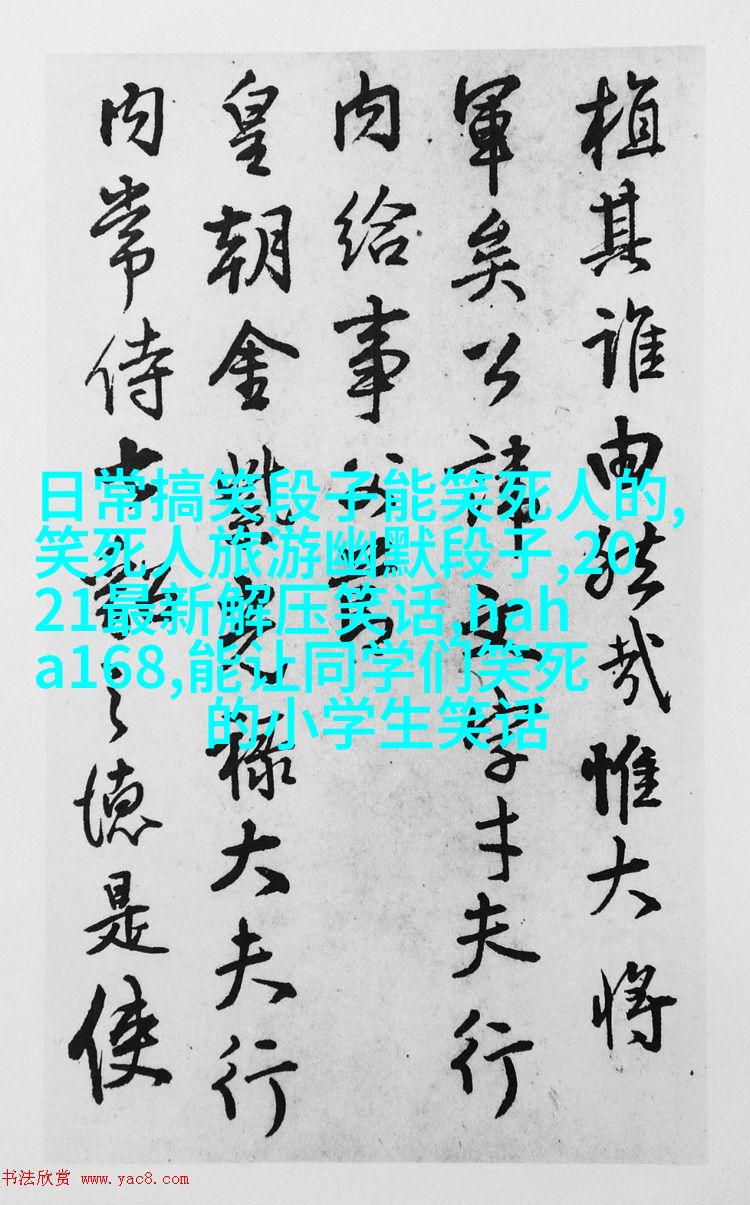 植其誰由哉惟大將
軍矣公諱文字才夫行
內給事父
皇朝金紫光祿大夫行
內常侍之德是使
日常搞笑段子能笑死人的,
笑死人旅游幽默段子,20
21最新解压笑话,hah
a168,能让同学们笑死
的小学生笑话
书法欣赏 www.yac8.com